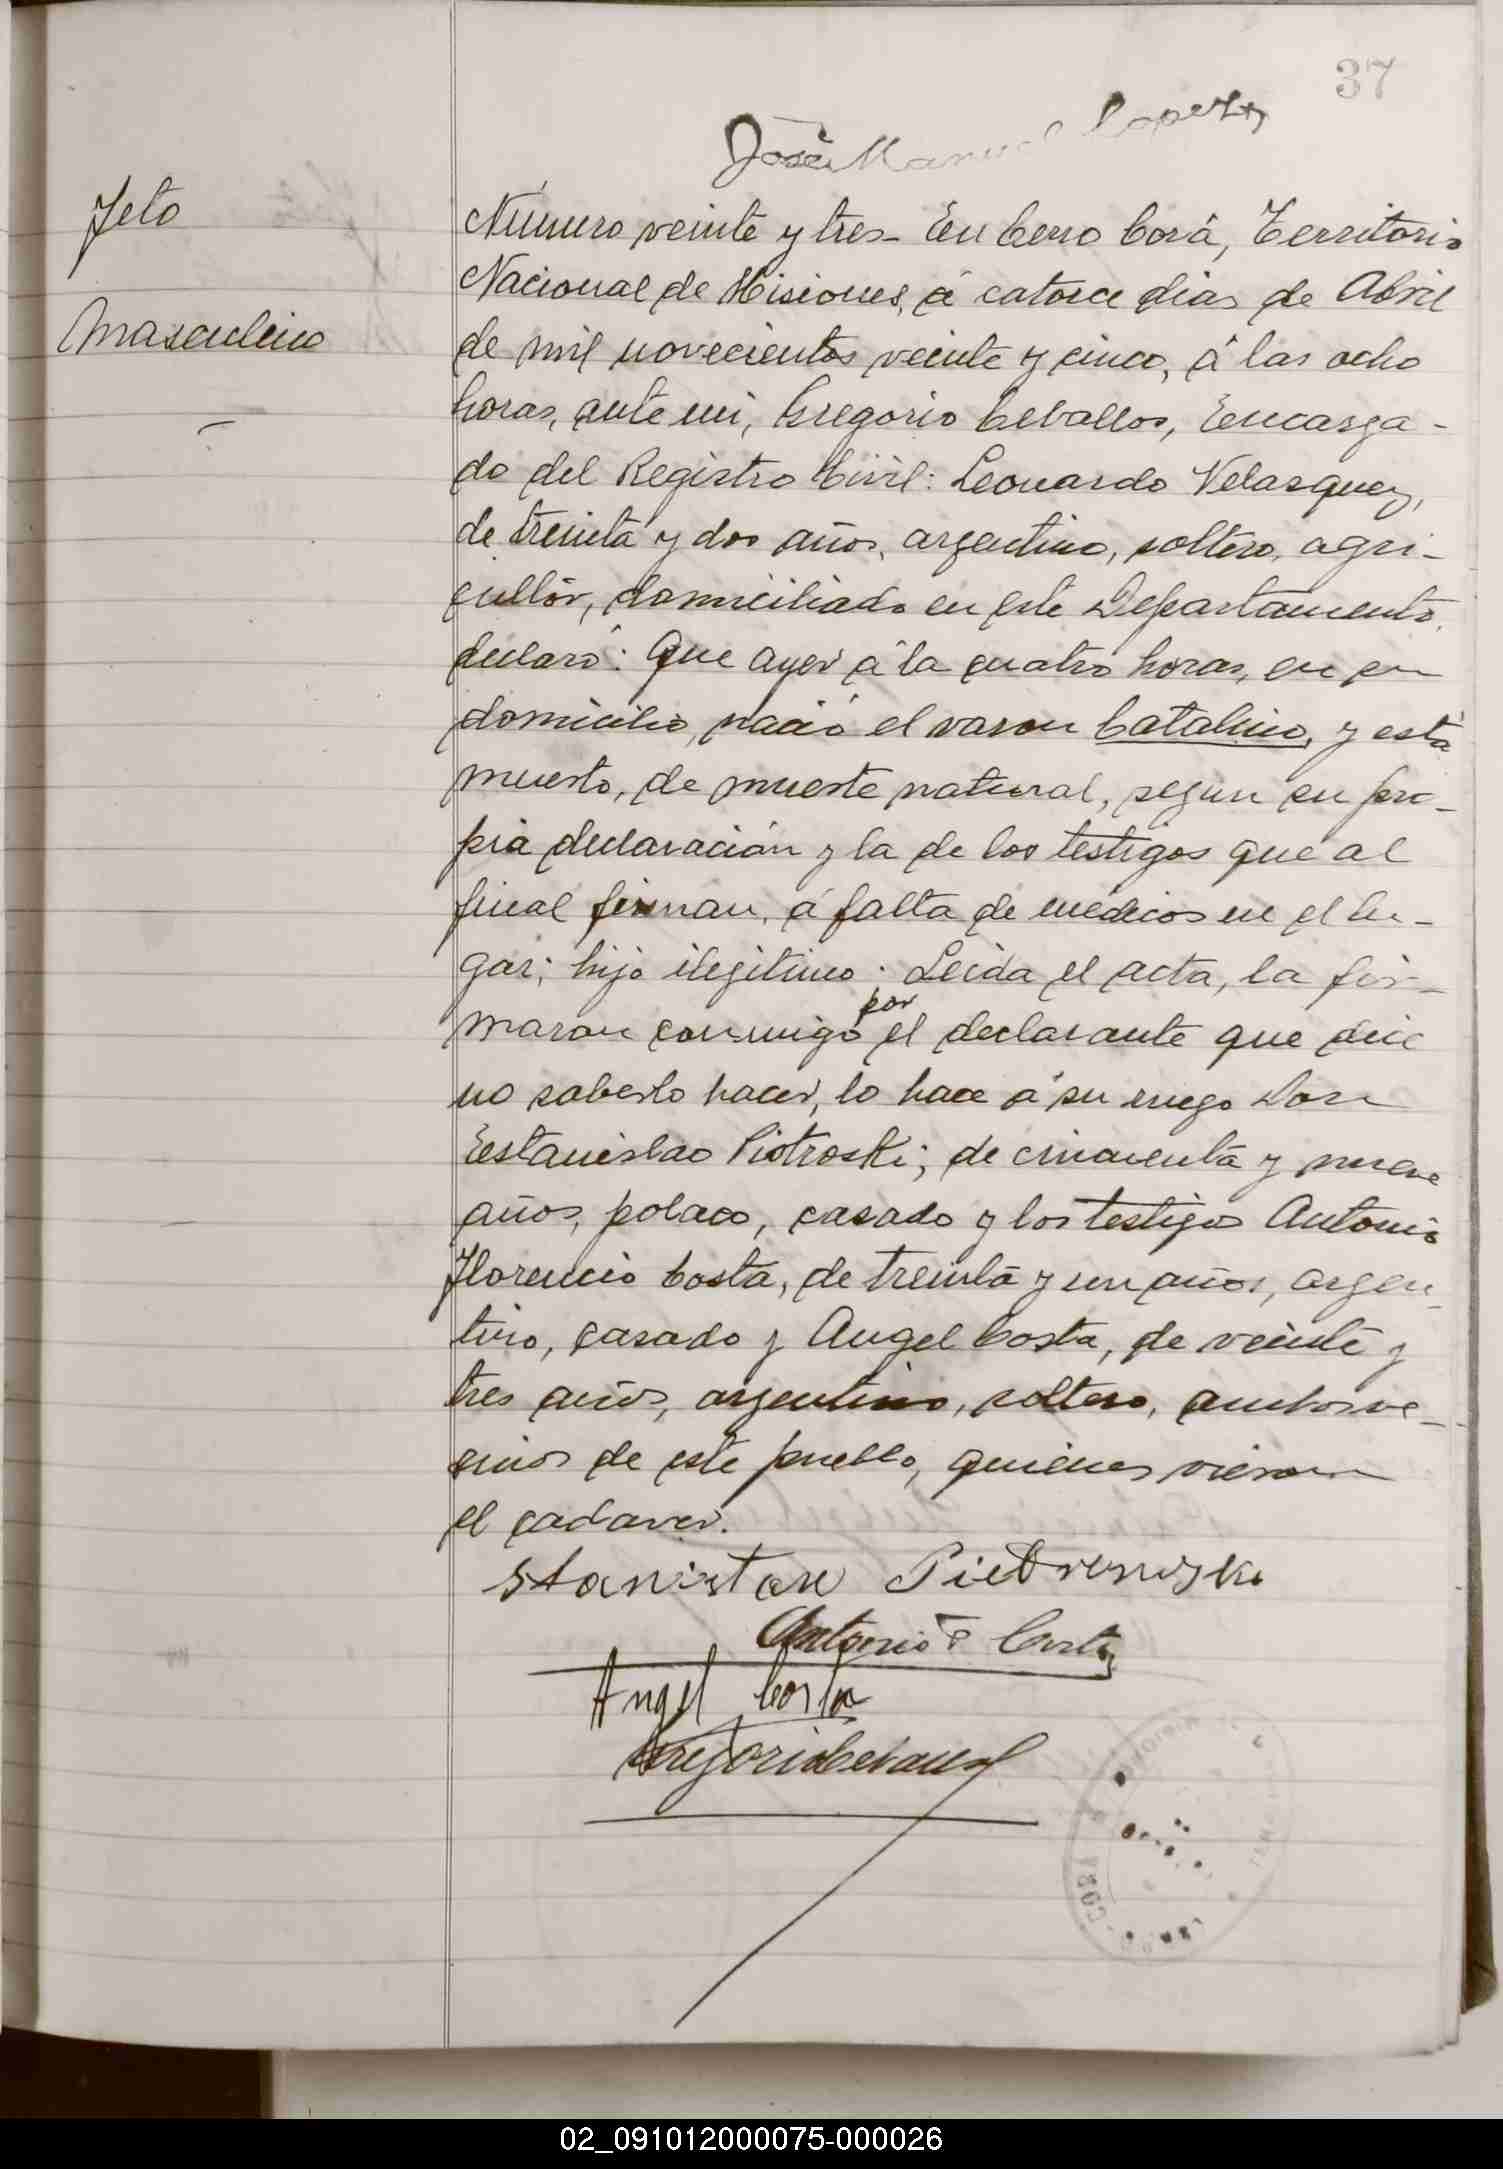 37
José Manuel Lopez
Feto
Masculino
Número veinte y tres - En Cerro Corá, Territorio
Nacional de Misiones, á catorce dias de Abril
de mil novecientos veinte y cinco, á las ocho
horas, ante mi, Gregorio Ceballos, Encarga-
do del Registro Civil: Leonardo Velasquez,
de treinta y dos años, argentino, soltero, agri-
cultor, domiciliado en este Departamento,
declaró: Que ayer á la cuatro horas, en su
domicilio, nació el varon Catalino, y está
muerto, de muerte natural, segun su pro-
pia declaración y la de los testigos que al
final firman, á falta de médicos en el lu-
gar; hijo ilegitimo. Leida el acta, la fir-
maron conmigo por el declarante que dice
no saberlo hacer, lo hace á su ruego Don
Estanislao Piotroski; de cincuenta y nueve
años, polaco, casado y los testigos Antonio
Florencio Costa, de treinta y un años, argen-
tino, casado y Angel Costa, de veinte y
tres años, argentino, soltero, ambos ve-
cinos de este pueblo, quienes vieron
el cadaver.
Antonio F Costa
Angel Costa
Gregorio Ceballos
02_091012000075-000026